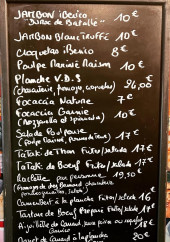 JAMBON iBERiCO
"Duroc de Batallé" 10€
JAMBON BLANC TRUFFÉ 10€
Croquetas iBERICO 8€
Poulpe Mariné Maison 10€
Planche V.D.S
(charcuterie, fromage, 24,00€
Focaccia Nature 7€
Focaccia Garnie
(Mozzarella et 10€
Salade Poulpe
(Poulpe Mariné, 17€
Tataki de Thon Frite/salade 17€
Tataki de Boeuf Frite/salade 17€
Raclette par personne 19,50€
(Fromage de
Camembert à la planche Frite/salade 16€
Tartare de Boeuf Préparé Frite/salade 17€
19€
de Canard à la planche 20€